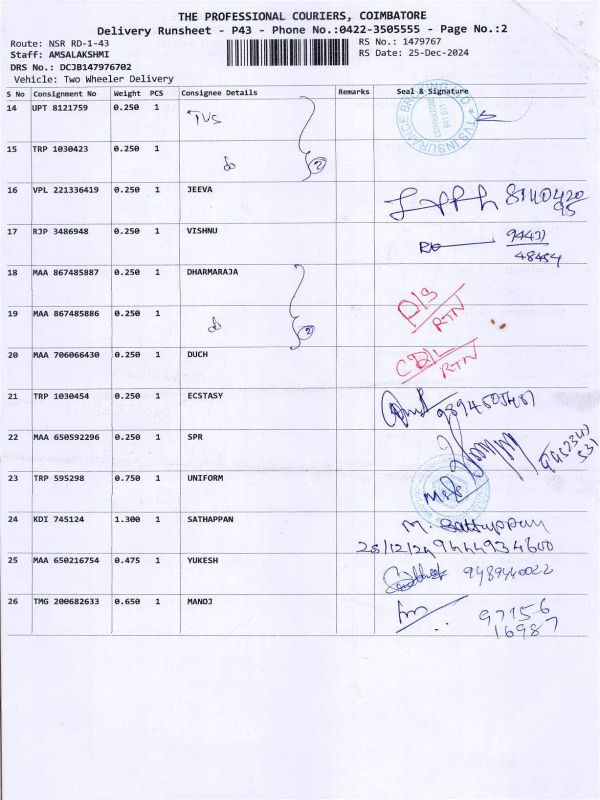 THE PROFESSIONAL COURIERS, COIMBATORE
Delivery Runsheet - P43 - Phone No.:0422-3505555 - Page No.:2
Route: NSR RD-1-43 RS No.: 1479767
Staff: AMSALAKSHMI RS Date: 25-Dec-2024
DRS No.: DCJB147976702
Vehicle: Two Wheeler Delivery
S No Consignment No Weight PCS Consignee Details Remarks Seal & Signature
14 UPT 8121759 0.250 1 TVS
15 TRP 1030423 0.250 1 do 2
TVS INSURANCE BROKING
16 VPL 221336419 0.250 1 JEEVA
17 RJP 3486948 0.250 1 VISHNU 94431
48454
18 MAA 867485887 0.250 1 DHARMARAJA
19 MAA 867485886 0.250 1 do 2 D/S
RTN
20 MAA 706066430 0.250 1 DUCH RTN
21 TRP 1030454 0.250 1 ECSTASY
22 MAA 650592296 0.250 1 SPR
23 TRP 595298 0.750 1 UNIFORM
24 KDI 745124 1.300 1 SATHAPPAN M. Sathappan
25/12/24 9444934600
25 MAA 650216754 0.475 1 YUKESH 9489440022
26 TMG 200682633 0.650 1 MANOJ 97156
16987